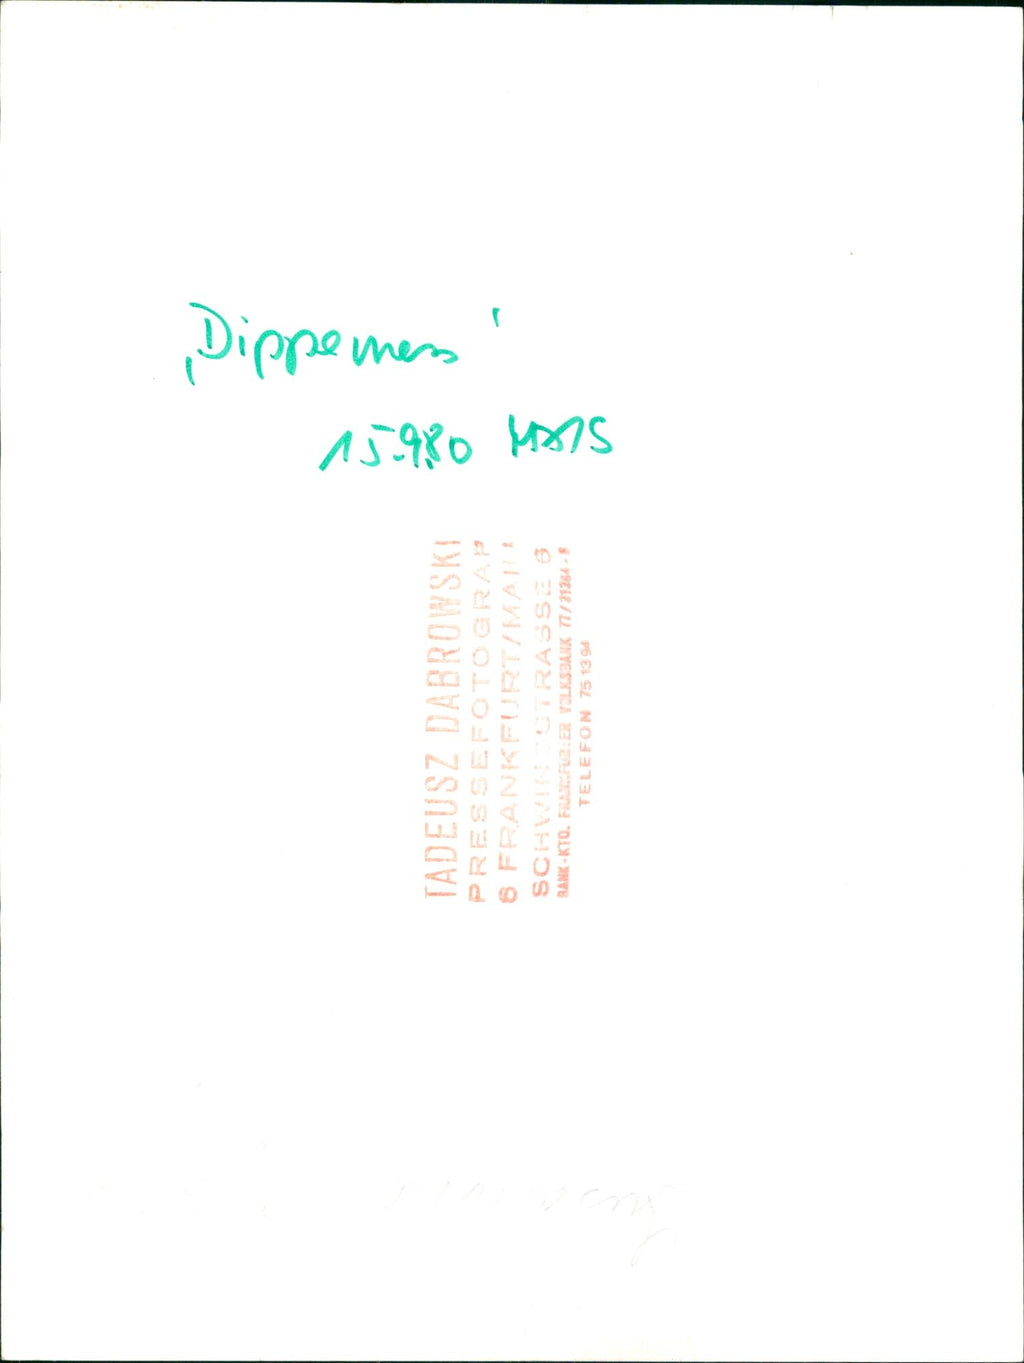 ‚Dippemess‘
15.9.80
TADEUSZ DABROWSKI
PRESSEFOTOGRAF
6 FRANKFURT/MAIN
SCHWINDSTRASSE 6
BANK-KTO. FRANKFURTER VOLKSBANK 77/31364-8
TELEFON 75 13 94